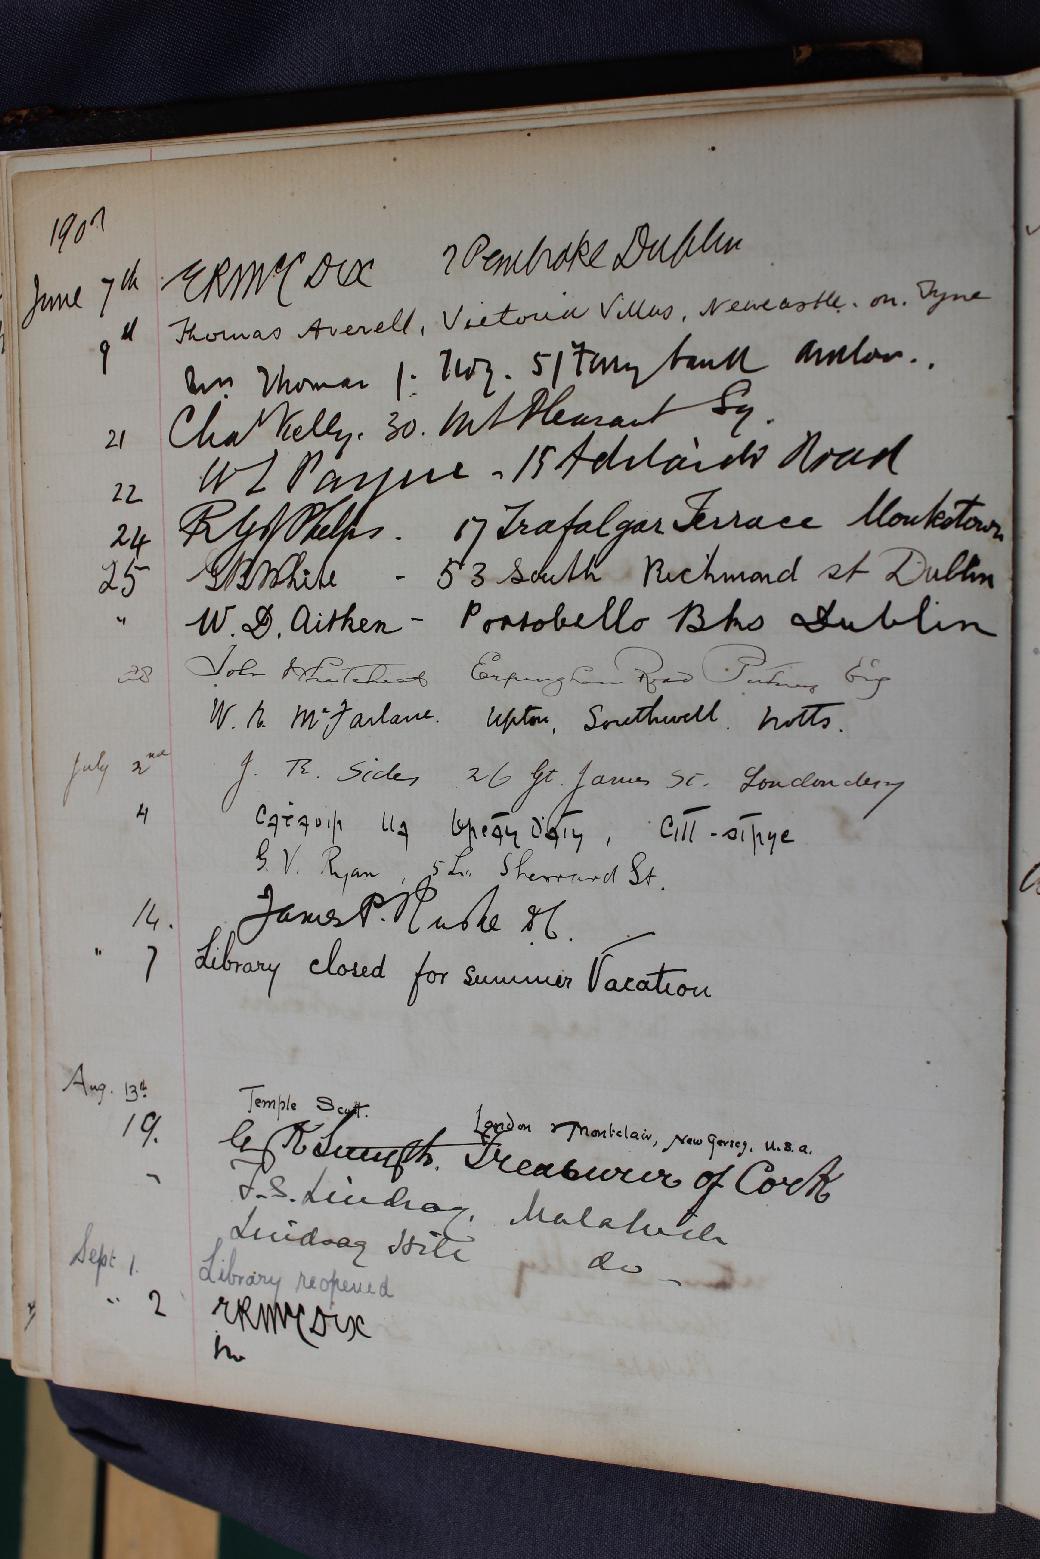 1907
June 7th ERMcC Dix 2 Pembroke Dublin
9th Thomas Averell, Victoria Villas, Newcastle. on. Tyne
Thomas J. 51 Ferrybank Arklow.
21 Chas Kelly. 30. Mt Pleasant Sq.
22 W L Payne - 15 Adelaide Road
24 Phelps. 17 Trafalgar Terrace Monkstown
25 G B White - 53 South Richmond st Dublin
" W. D. Aitken - Portobello Bks Dublin
28 John Whitehead Erpingham Road Putney Eng
W. R. McFarlane. Upton, Southwell. Notts.
July 2nd J. R. Sides 26 Gt. James St. Londonderry
4
G. V. Ryan, 5 Lr. Sherrard St.
14. James P.
" 7 Library closed for summer Vacation
Aug. 13th Temple Scott. London & Montclair, New Jersey, U.S.A.
19. Treasurer of Cork
" F. S. Lindsay, Malahide
Lindsay do -
Sept 1. Library reopened
" 2 ERMcC Dix